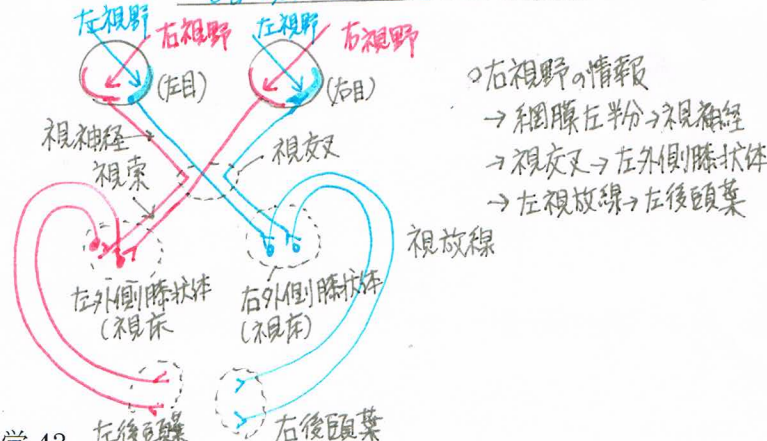 左視野
右視野
左視野
右視野
(左目)
(右目)
視神経
視索
視交叉
視放線
左外側膝状体
(視床
右外側膝状体
(視床)
左後頭葉
右後頭葉
○右視野の情報
→網膜左半分→視神経
→視交叉→左外側膝状体
→左視放線→左後頭葉